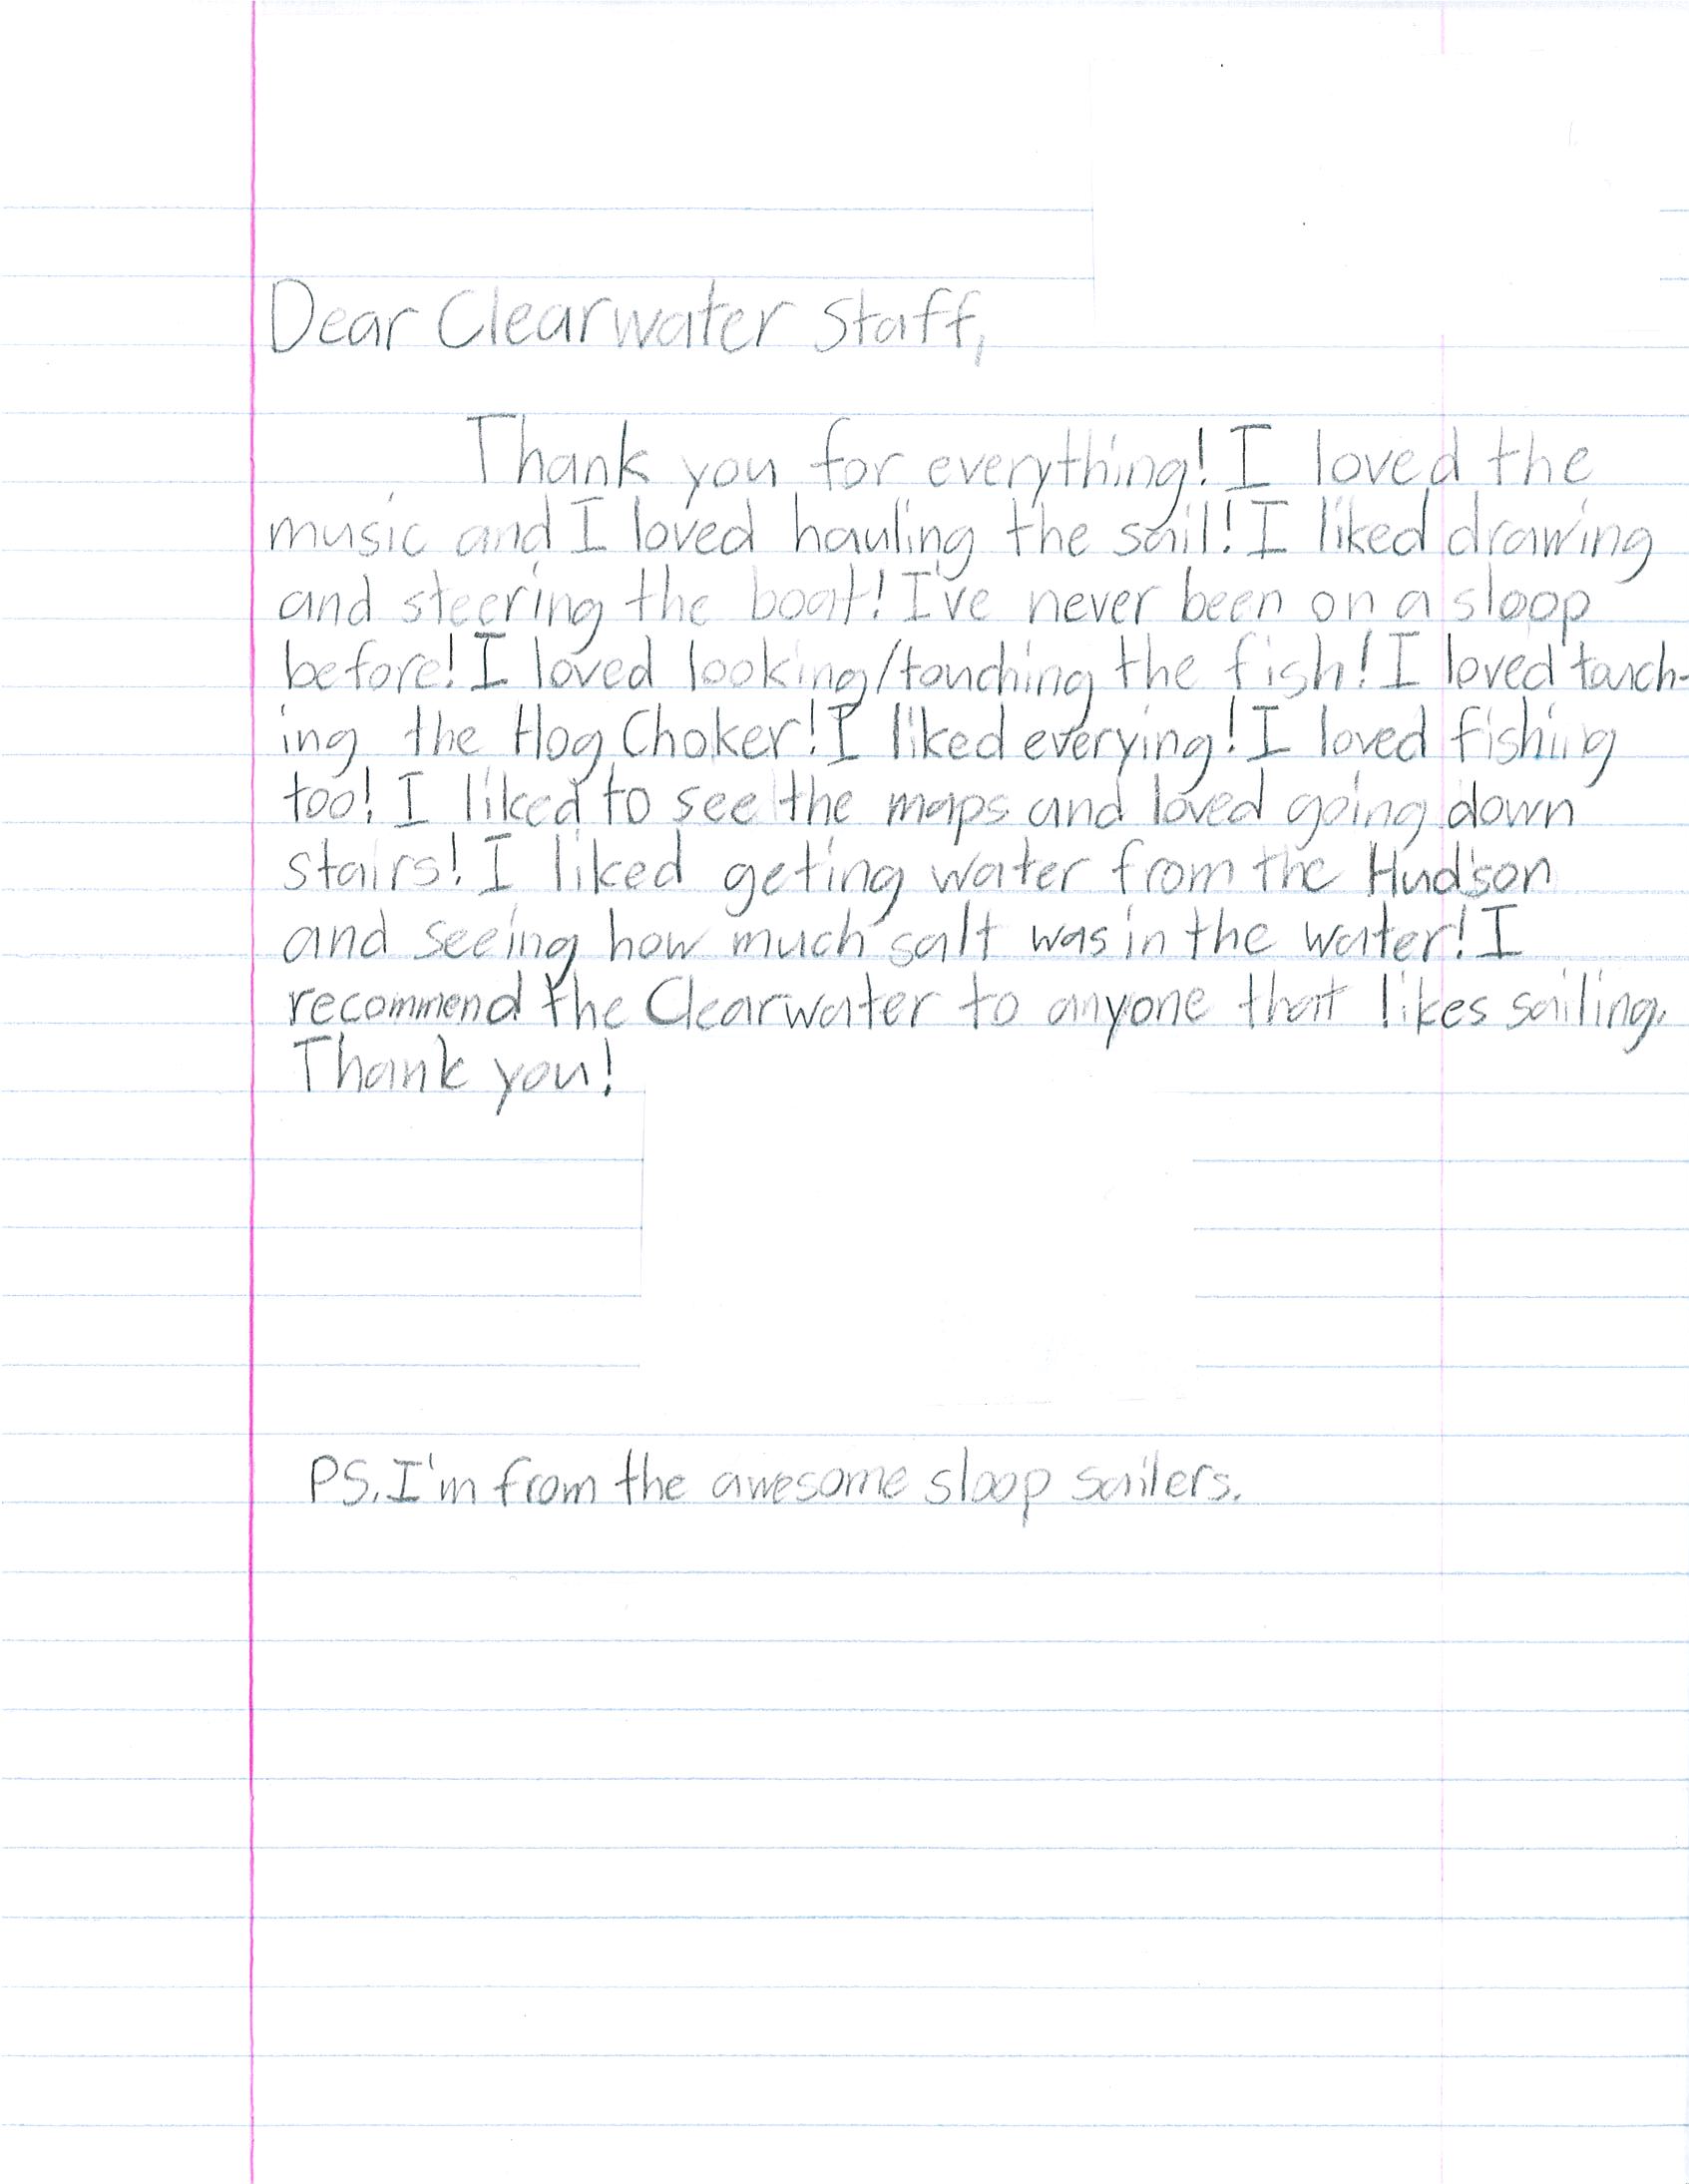 Dear Clearwater Staff,
Thank you for everything! I loved the
music and I loved hauling the sail! I liked drawing
and steering the boat! I've never been on a sloop
before! I loved looking/touching the fish! I loved touch-
ing the Hog Choker! I liked everying! I loved fishing
too! I liked to see the maps and loved going down
stairs! I liked geting water from the Hudson
and seeing how much salt was in the water! I
recommend the Clearwater to anyone that likes sailing.
Thank you!
PS. I'm from the awesome sloop sailers.